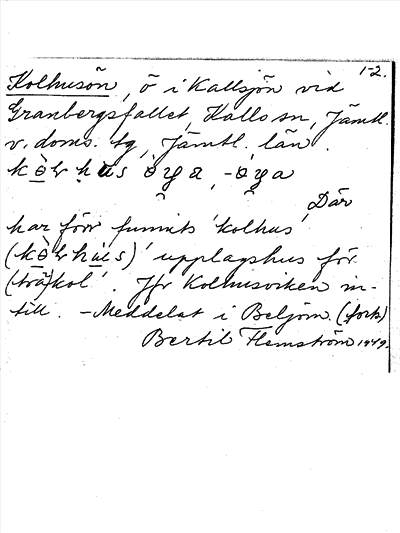 1-2.
Kolhusön, ö i Kallsjön vid
Granbergsfallet, Kalls sn, Jämtl.
v. doms. tg, Jämtl. län.
Där
har förr funnits 'kolhus'
'upplagshus för
(trä)kol'. Jfr Kolhusviken in-
till. - Meddelat i Beljöm. (fork)
Bertil Flemström 1949.